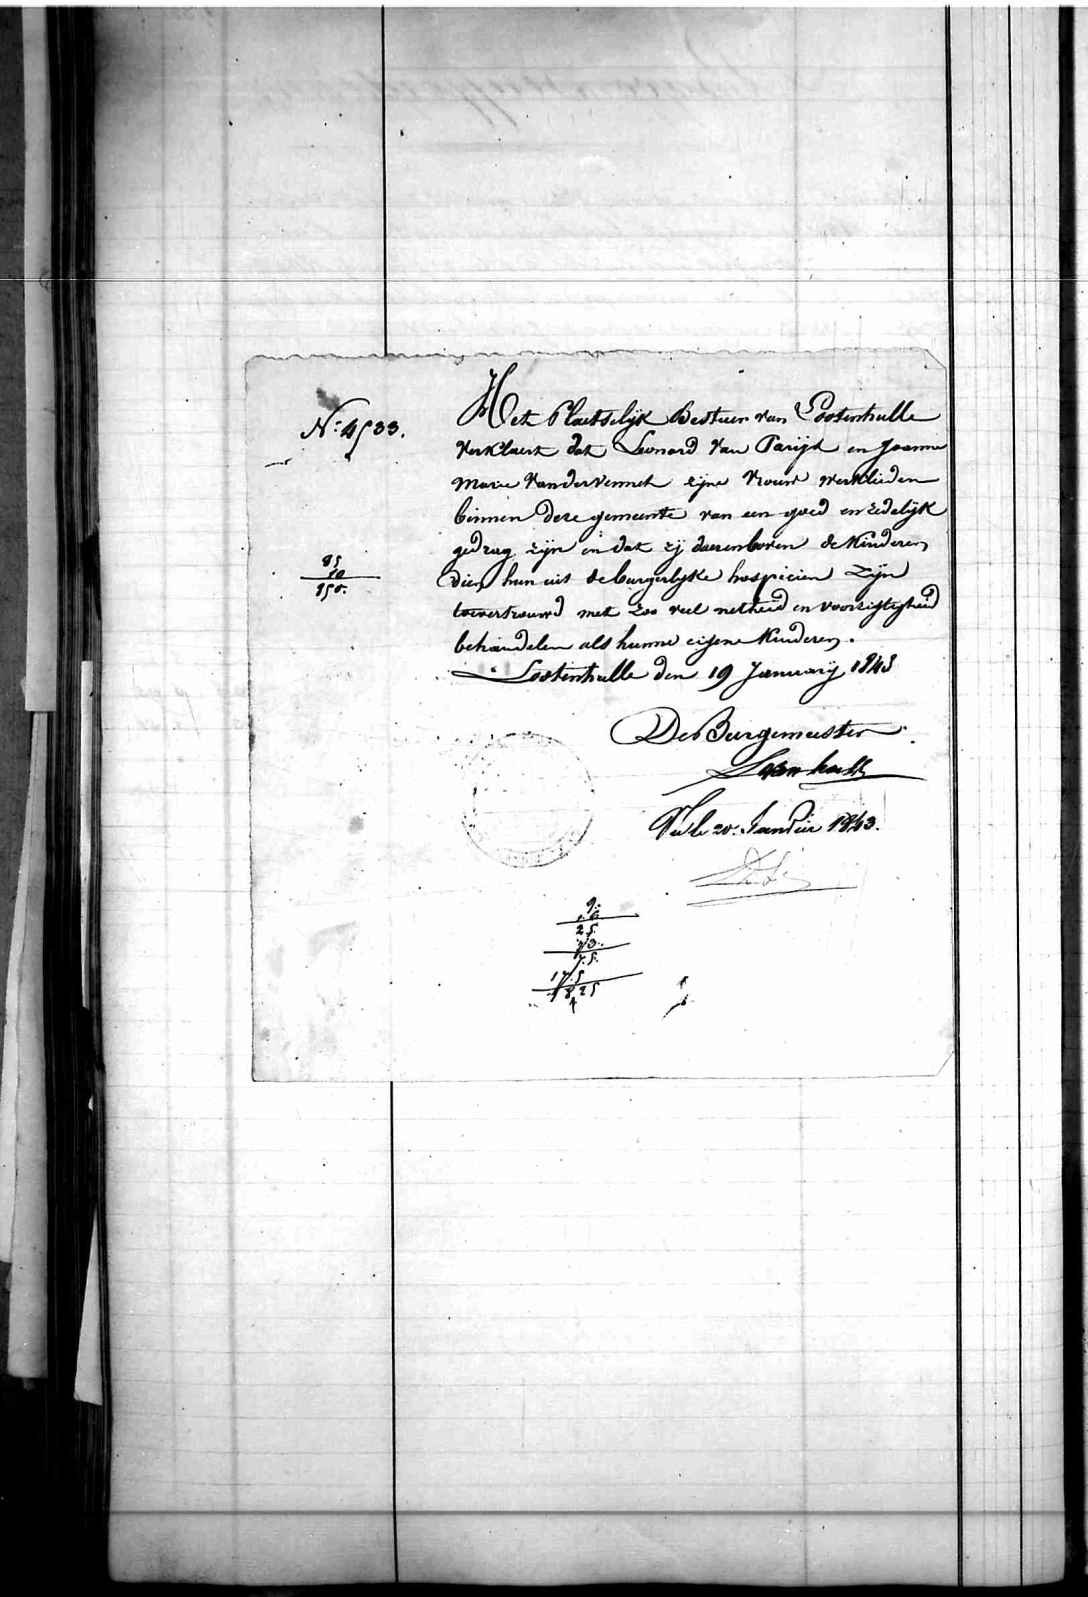 N.º 4533.
Het Plaetselijk Bestuur van Oostenhulle
verklaert dat Leonard Van Parijs en Joanna
Marie Vandervennet zijne Vrouw werklieden
binnen deze gemeente van een goed en zedelijk
gedrag zijn en dat zij daerenboven de Kinderen
dien hun uit de burgerlyke hospicien Zijn
toevertrouwd met zoo veel netheid en voorzigtigheid
behandelen als hunne eigene Kinderen.
Oostenhulle den 19 January 1843
De Burgemeester
Vu le 20. Janvier 1843.
85
10
950.
9.
25.
3.
7.5.
17.5
18,25